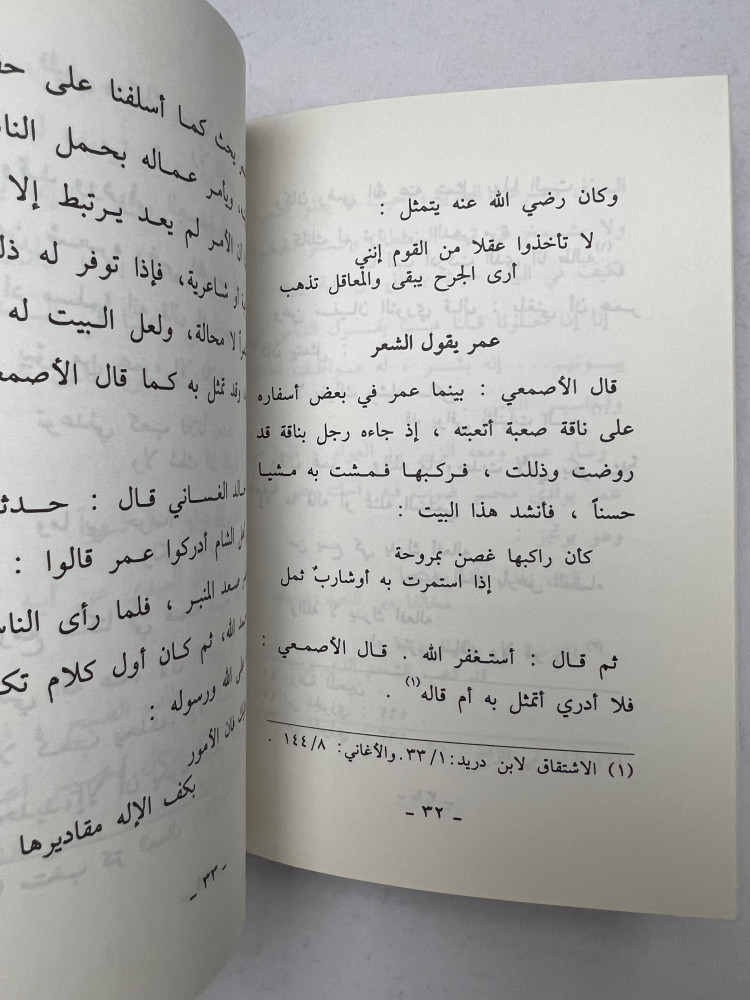 وكان رضي الله عنه يتمثل :
لا تأخذوا عقلا من القوم إنني
أرى الجرح يبقى والمعاقل تذهب
عمر يقول الشعر
قال الأصمعي : بينما عمر في بعض أسفاره
على ناقة صعبة أتعبته ، إذ جاءه رجل بناقة قد
روضت وذللت ، فركبها فمشت به مشيا
حسناً ، فأنشد هذا البيت :
كأن راكبها غصن بمروحة
إذا استمرت به أوشاربٌ ثمل
ثم قال : أستغفر الله . قال الأصمعي :
فلا أدري أتمثل به أم قاله(١) .
(١) الاشتقاق لابن دريد: ٣٣/١. والأغاني: ١٤٤/٨ .
- ٣٢ -
بحث كما أسلفنا على
ويأمر عماله بحمل
ان الأمر لم يعد يرتبط إلا
أو شاعرية، فإذا توفر له
لا محالة، ولعل البيت له
وقد تمثل به كما قال
الغساني قال :
الشام أدركوا عمر قالوا :
صعد المنبر ، فلما رأى
الله، ثم كان أول كلام
الله ورسوله :
فان الأمور
بكف الإله مقاديرها
- ٣٣ -